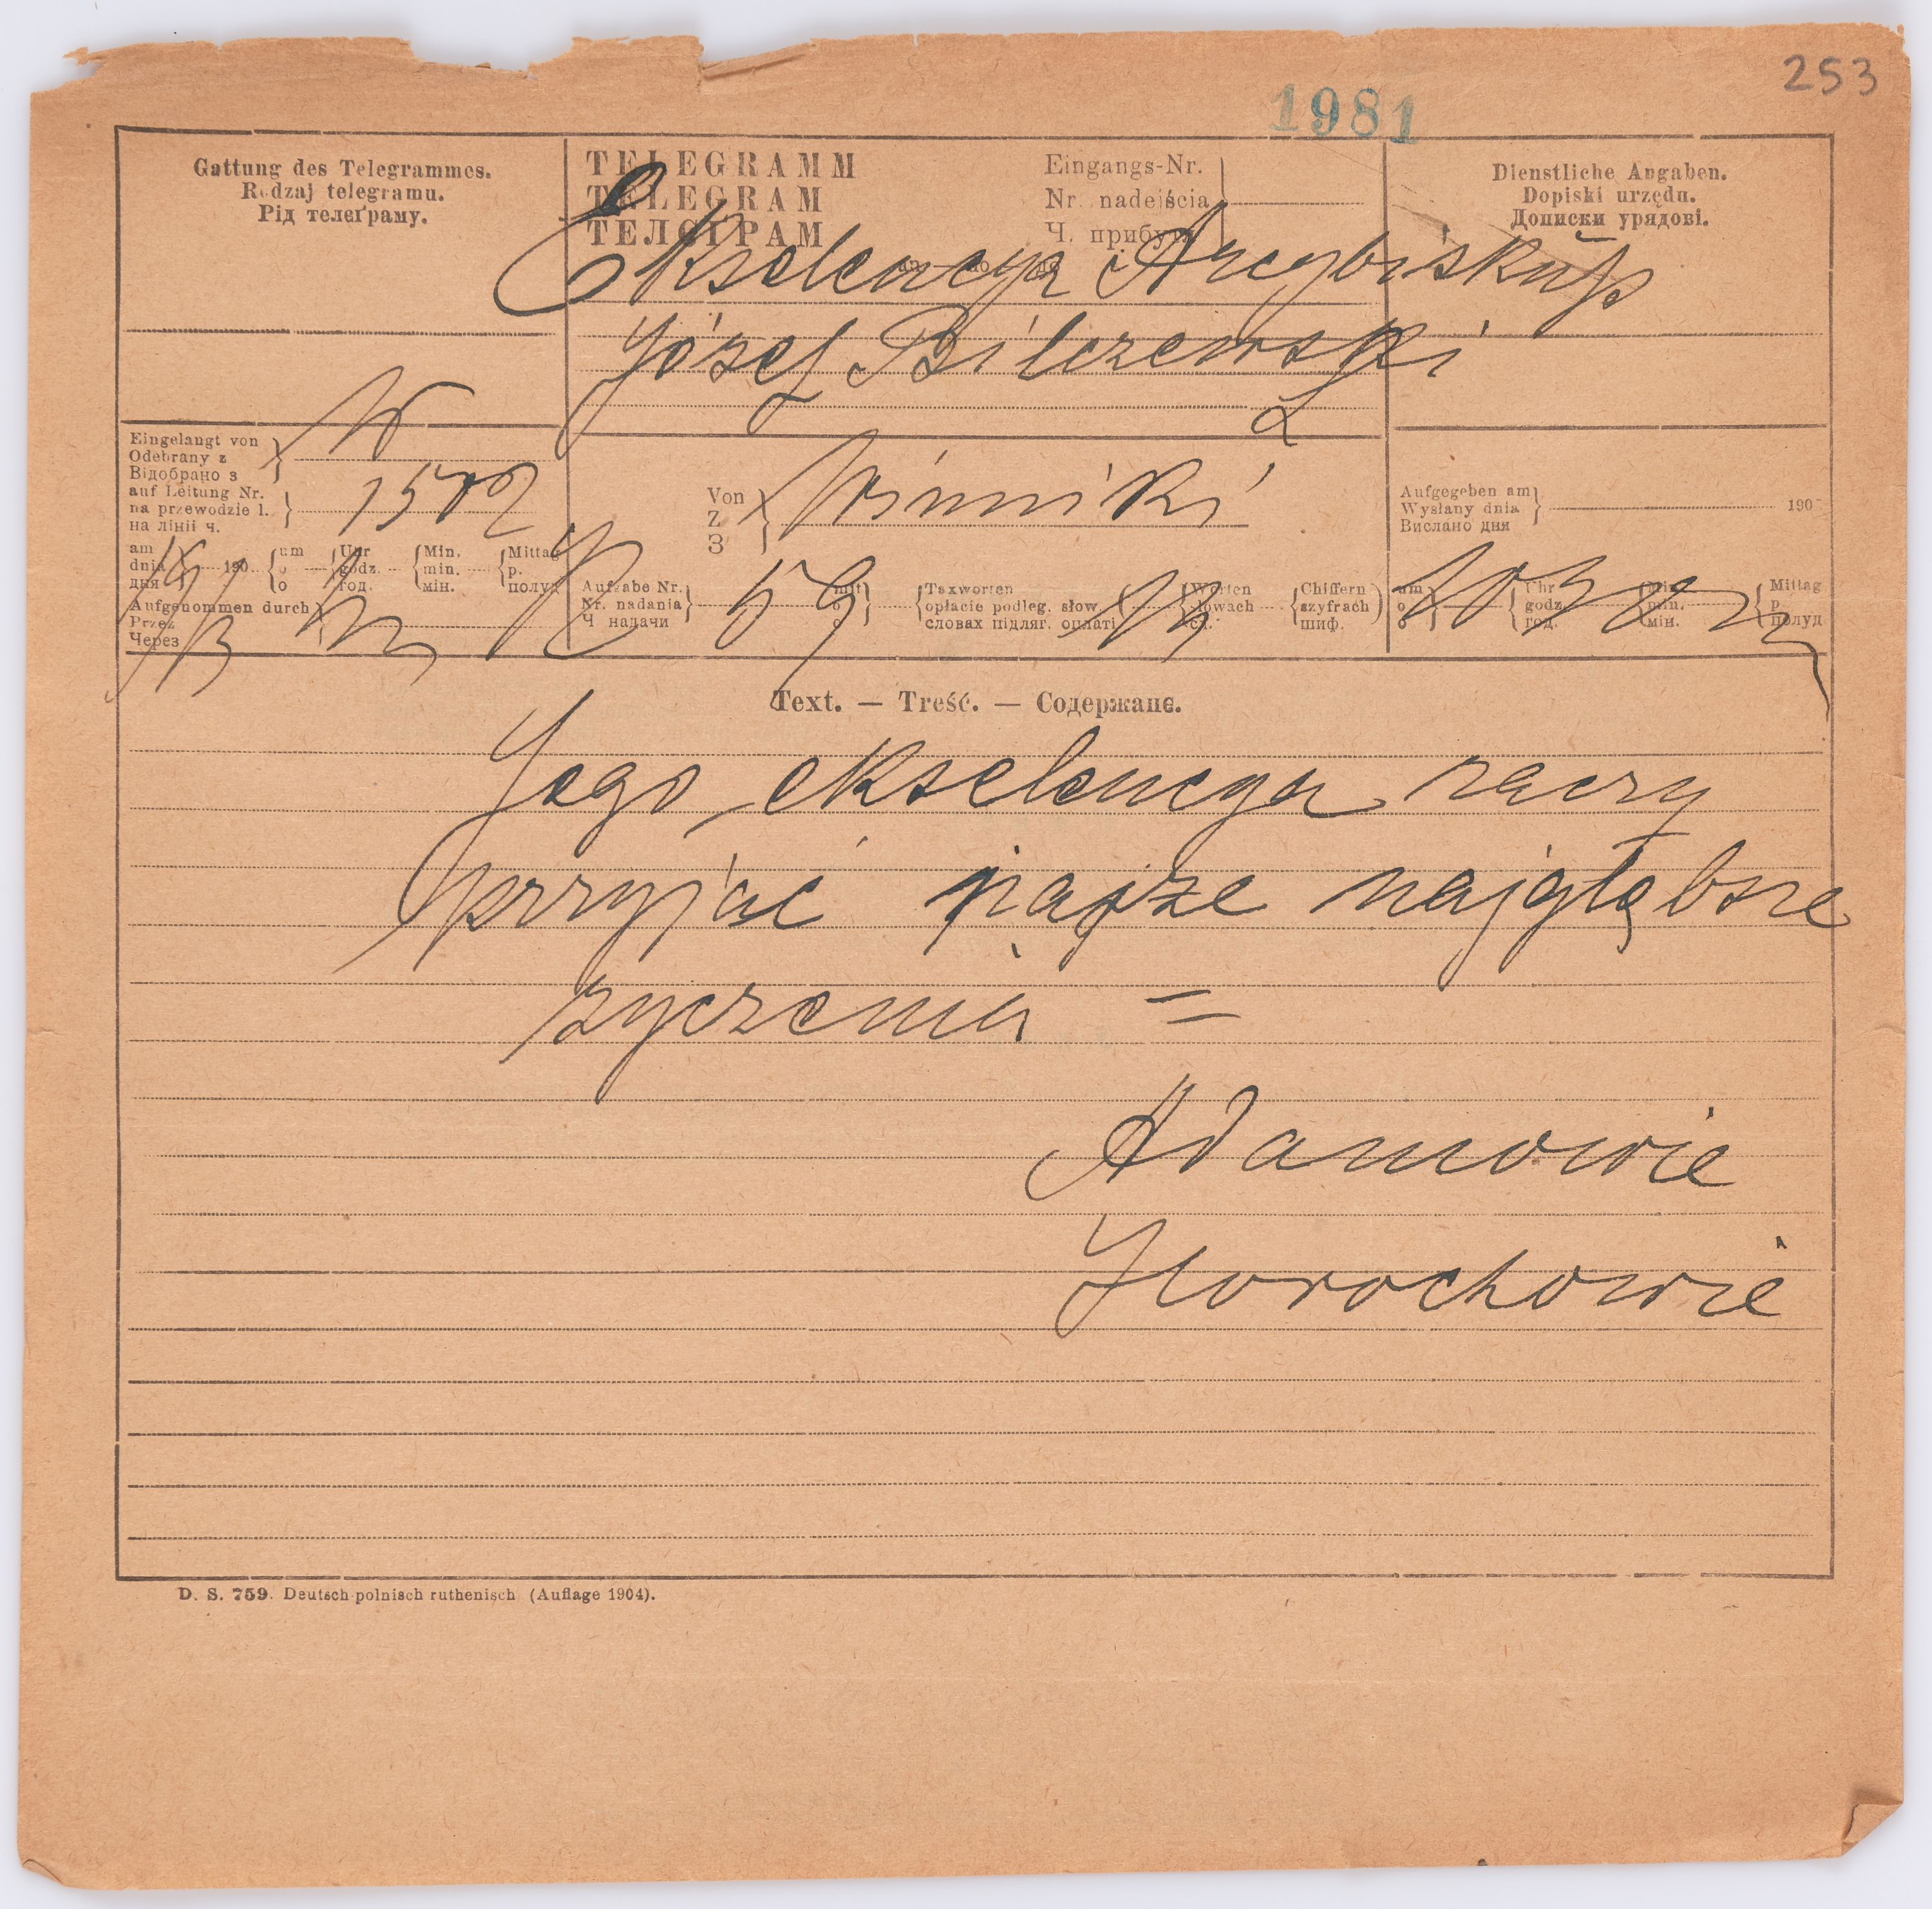 253
1981
Gattung des Telegrammes.
Rodzaj telegramu.
Рід телеґраму.
TELEGRAMM
TELEGRAM
ТЕЛЄҐРАМ
Eingangs-Nr.
Nr. nadejścia
Ч. прибутя
Dienstliche Angaben.
Dopiski urzędu.
Дописки урядові.
Ekselencya Arcybiskup
Józef Bilczewski
L
Eingelangt von
Odebrany z
Відобрано з
W
auf Leitung Nr.
na przewodzie l.
на лінії ч.
Von
Z
З
Winniki
Aufgegeben am
Wysłany dnia
Вислано дня
190
am
dnia
дня
190
um
o
о
Uhr
godz.
год.
Min.
min.
мін.
Mittag
p.
полуд
Aufgenommen durch
Przez
Через
Aufgabe Nr.
Nr. nadania
Ч надачи
59
mit
o
о
Taxworten
opłacie podleg. słow
словах підляг. оплаті
13
Worten
słowach
сл.
Chiffern
szyfrach
шиф.
um
o
о
Uhr
godz.
год.
Min.
min.
мін.
Mittag
p.
полуд
Text. — Treść. — Содержанє.
Jego ekselencya raczy
przyjać nasze najgłębsze
zyczenia =
Adamowie
Horochowie
D. S. 759. Deutsch-polnisch ruthenisch (Auflage 1904).